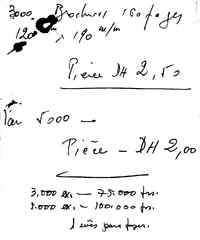 3000. Brochures 160 pages
120 x 190 m/m
Pièce DH 2,50
Par 5000 —
Pièce — DH 2,00
3.000 ex. — 75.000 frs.
5.000 ex. — 100.000 frs.